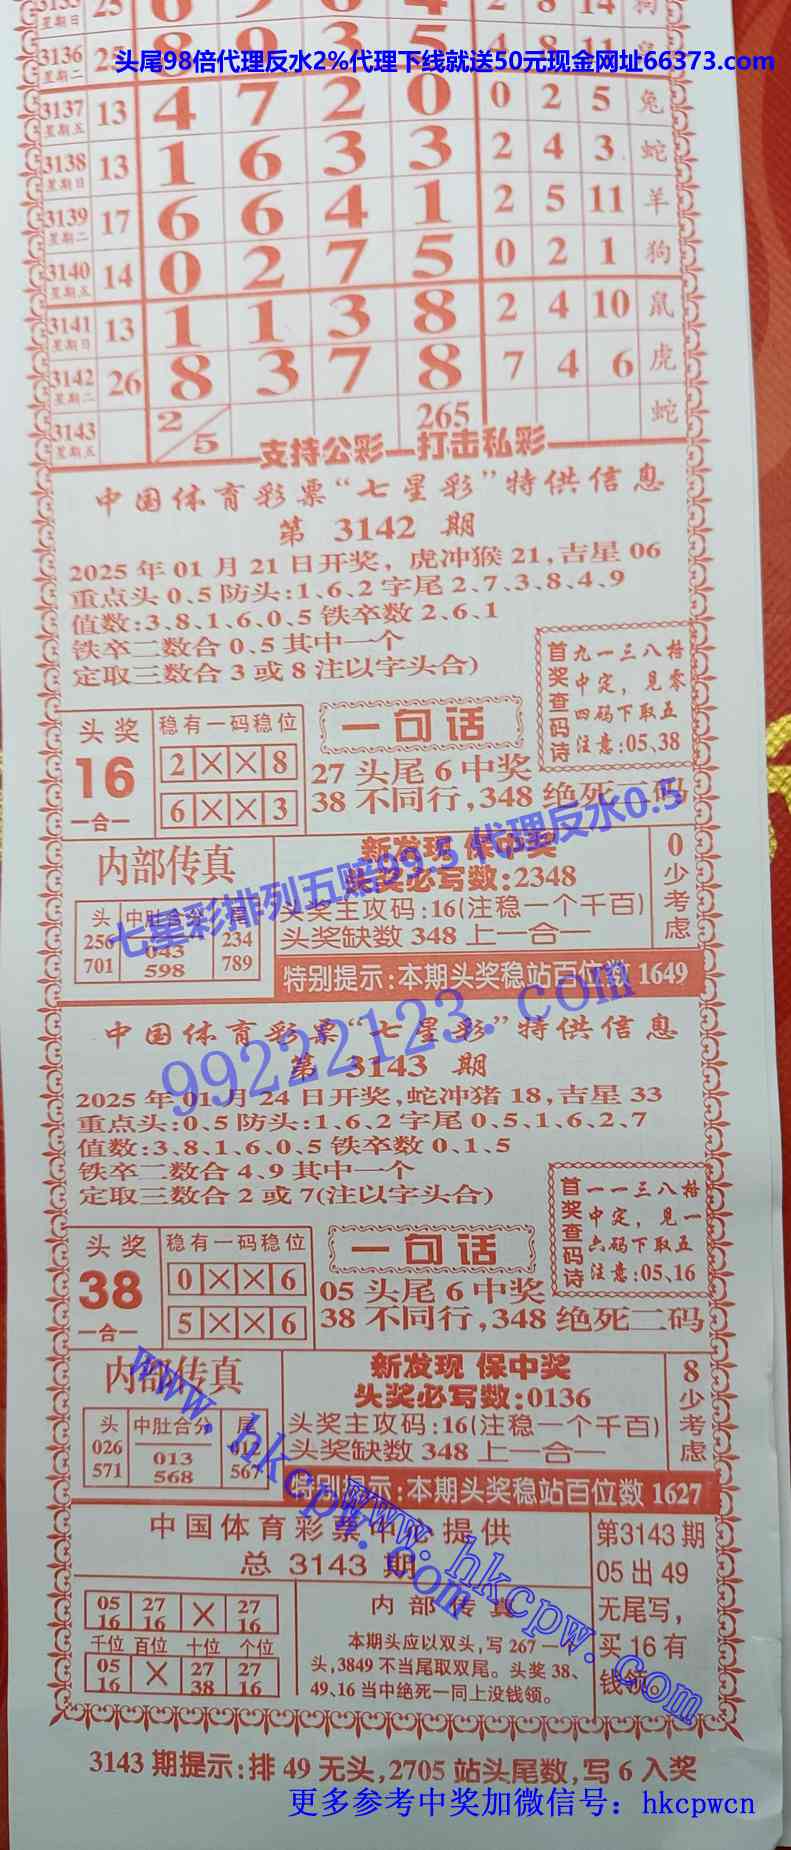 3135 星期日 25 2 8 14 狗
3136 星期二 25 8 9 3 5 4 8 11
头尾98倍代理反水2%代理下线就送50元现金网址66373.com
3137 星期五 13 4 7 2 0 0 2 5 兔
3138 星期日 13 1 6 3 3 2 4 3 蛇
3139 星期二 17 6 6 4 1 2 5 11 羊
3140 星期五 14 0 2 7 5 0 2 1 狗
3141 星期日 13 1 1 3 8 2 4 10 鼠
3142 星期二 26 8 3 7 8 7 4 6 虎
3143 星期五 2/5 265 蛇
支持公彩—打击私彩
中国体育彩票“七星彩”特供信息
第 3142 期
2025年01月21日开奖，虎冲猴21,吉星06
重点头0.5防头:1、6、2字尾2、7、3、8、4、9
值数:3、8、1、6、0、5铁卒数2、6、1
铁卒二数合0、5其中一个
定取三数合3或8注以字头合)
首奖查码诗
九一三八档
中定，见零
四码下取五
注意:05、38
头奖
16
一合一
稳有一码稳位
2××8
6××3
一句话
27头尾6中奖
38不同行,348绝死二码
内部传真
头 中肚合分 尾
256 043 234
701 598 789
新发现 保中奖
头奖必写数:2348
头奖主攻码:16(注稳一个千百)
头奖缺数348上一合一
0少考虑
特别提示:本期头奖稳站百位数1649
七星彩排列五赔99.5 代理反水0.5
99222123.com
中国体育彩票“七星彩”特供信息
第 3143 期
2025年01月24日开奖,蛇冲猪18,吉星33
重点头:0、5防头:1、6、2字尾0、5、1、6、2、7
值数:3、8、1、6、0、5铁卒数0、1、5
铁卒二数合4、9其中一个
定取三数合2或7(注以字头合)
首奖查码诗
一一三八档
中定，见一
六码下取五
注意:05、16
头奖
38
一合一
稳有一码稳位
0××6
5××6
一句话
05头尾6中奖
38不同行,348绝死二码
内部传真
头 中肚合分 尾
026 013 012
571 568 567
新发现 保中奖
头奖必写数:0136
头奖主攻码:16(注稳一个千百)
头奖缺数348上一合一
8少考虑
特别提示:本期头奖稳站百位数1627
www.hkcpw.com
www.hkcpw.com
中国体育彩票中心提供
总 3143 期
05 27 × 27
16 16 16
千位 百位 十位 个位
05 × 27 27
16 38 16
内部传真
本期头应以双头,写267一
头,3849不当尾取双尾。头奖38、
49、16当中绝死一同上没钱领。
第3143期
05出49
无尾写，
买16有
钱领。
3143期提示:排49无头,2705站头尾数,写6入奖
更多参考中奖加微信号：hkcpwcn